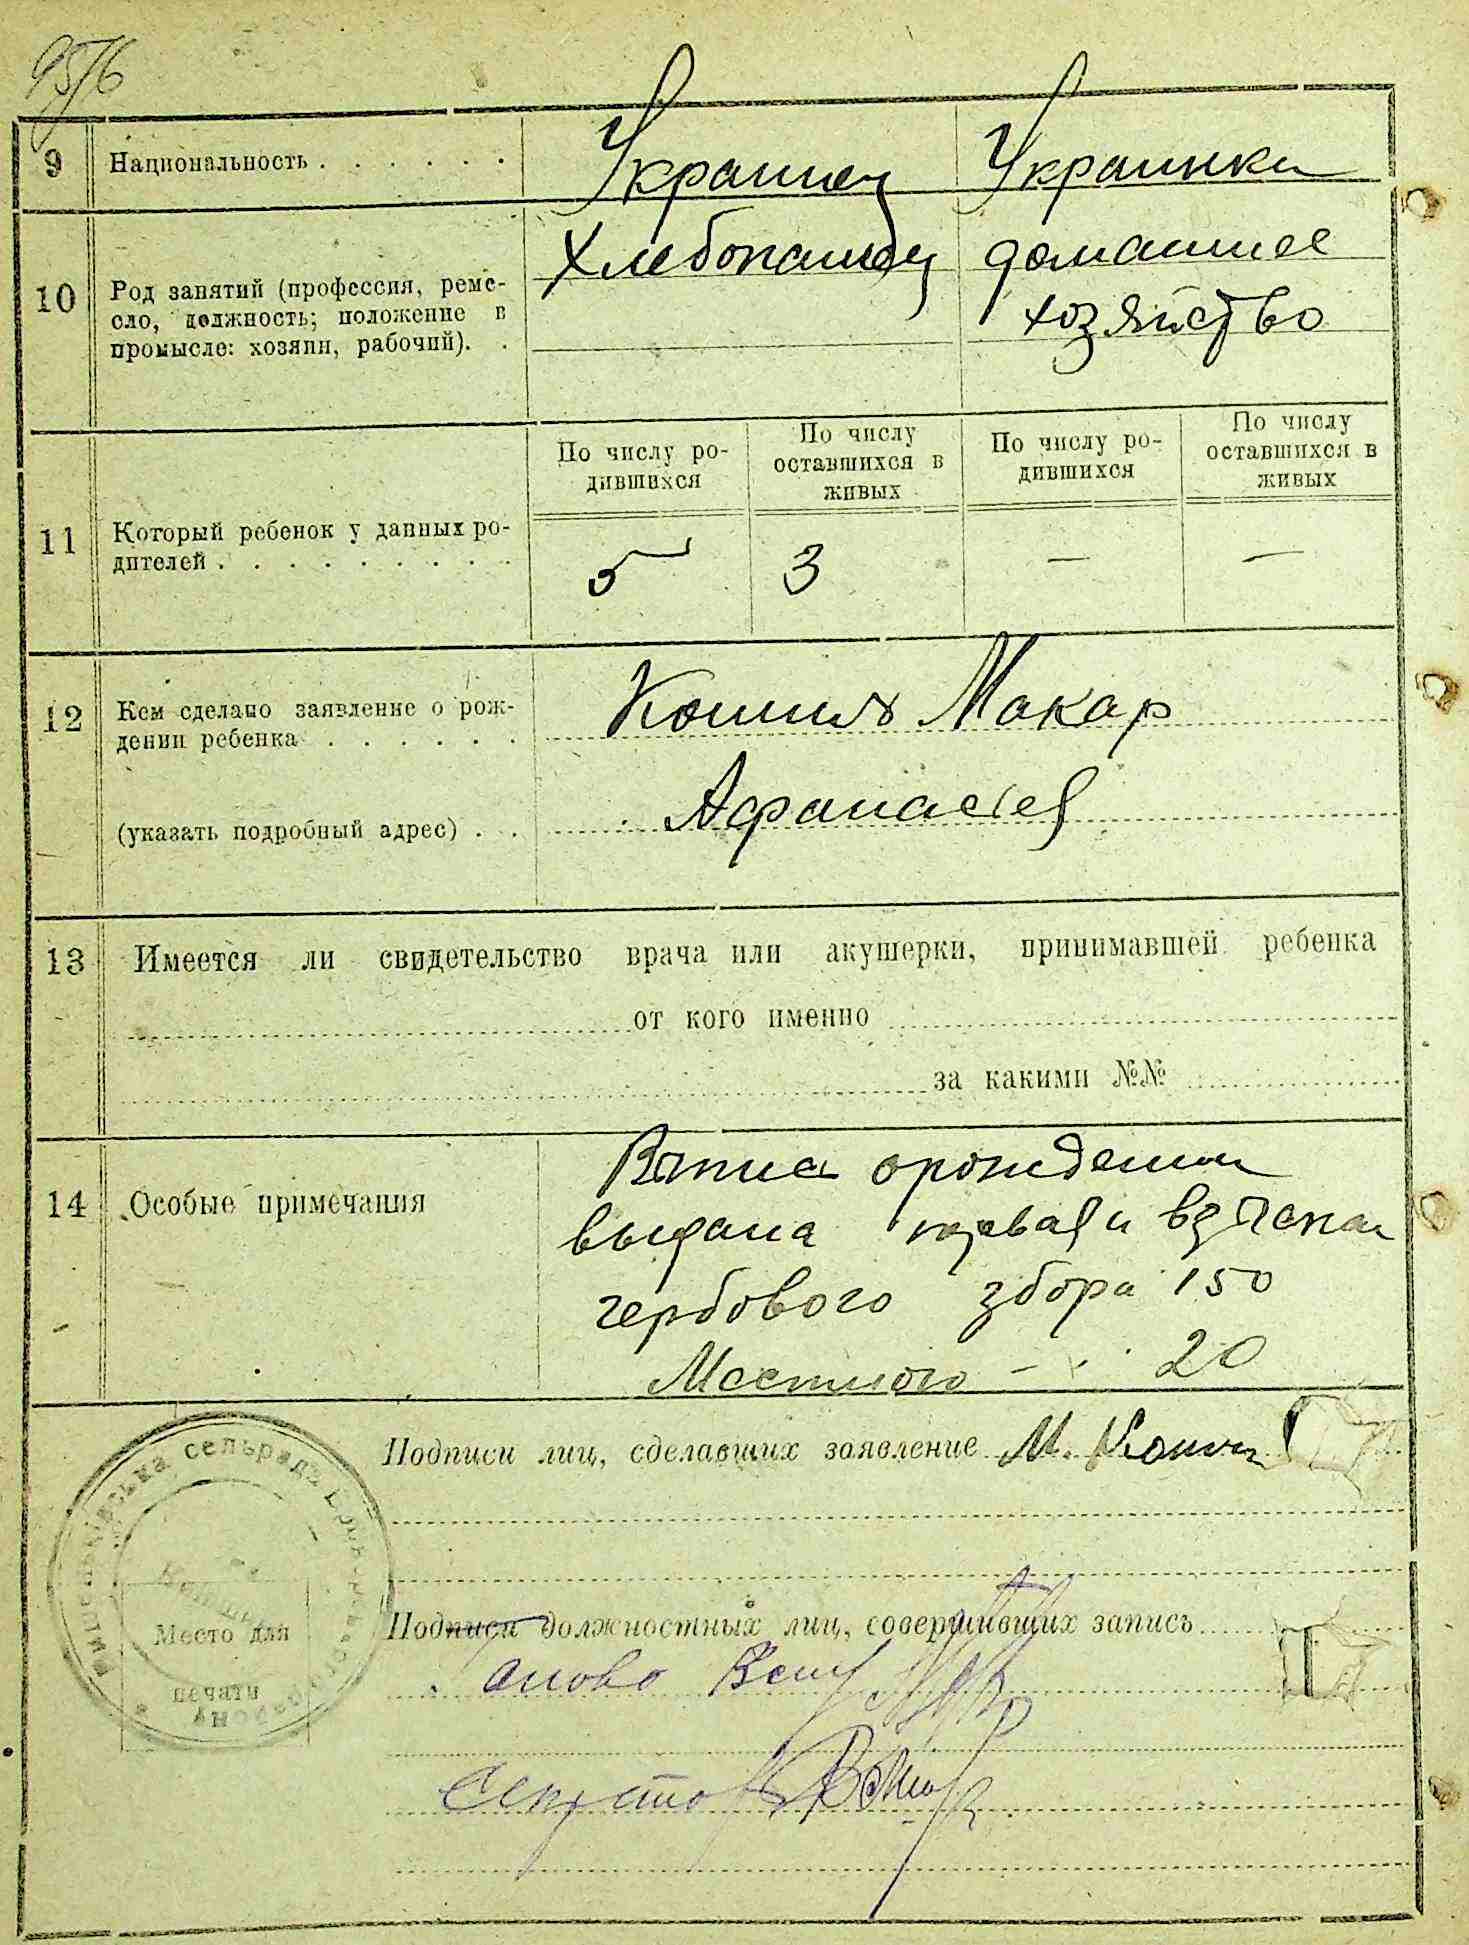 95/6
9 Национальность . . . . . . Украинец Украинка
10 Род занятий (профессия, реме-
сло, должность; положение в
промысле: хозяин, рабочий). .
Хлебопашец
домашнее
хозяйство
По числу ро-
дившихся
По числу
оставшихся в
живых
По числу ро-
дившихся
По числу
оставшихся в
живых
11 Который ребенок у данных ро-
дителей . . . . . . . . . .
5 3 — —
12 Кем сделано заявление о рож-
дении ребенка . . . . . .
(указать подробный адрес) . .
Макар
Афанасіев
13 Имеется ли свидетельство врача или акушерки, принимавшей ребенка
от кого именно
за какими №№
14 Особые примечания
о рождении
выдана первая и взыскан
гербового збора 150
Местного — 20
Подписи лиц, сделавших заявление М.
Подписи должностных лиц, совершивших запись
сельрада
Место для
печати